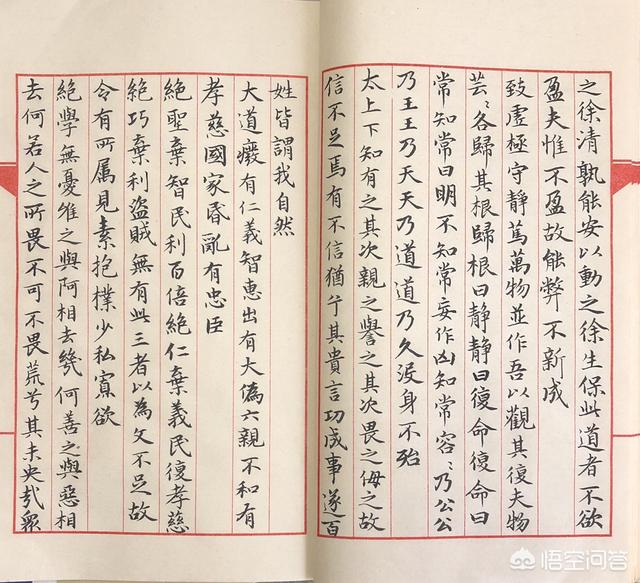 之徐清孰能安以動之徐生保此道者不欲
盈夫惟不盈故能弊不新成
致虛極守靜篤萬物並作吾以觀其復夫物
芸〻各歸其根歸根曰靜靜曰復命復命曰
常知常曰明不知常妄作凶知常容〻乃公公
乃王王乃天天乃道道乃久沒身不殆
太上下知有之其次親之譽之其次畏之侮之故
信不足焉有不信猶兮其貴言功成事遂百
姓皆謂我自然
大道癈有仁義智惠出有大偽六親不和有
孝慈國家昏亂有忠臣
絕聖棄智民利百倍絕仁棄義民復孝慈
絕巧棄利盜賊無有此三者以為文不足故
令有所属見素抱樸少私寡欲
絕學無憂唯之與阿相去幾何善之與惡相
去何若人之所畏不可不畏荒兮其未央哉眾
悟空问答